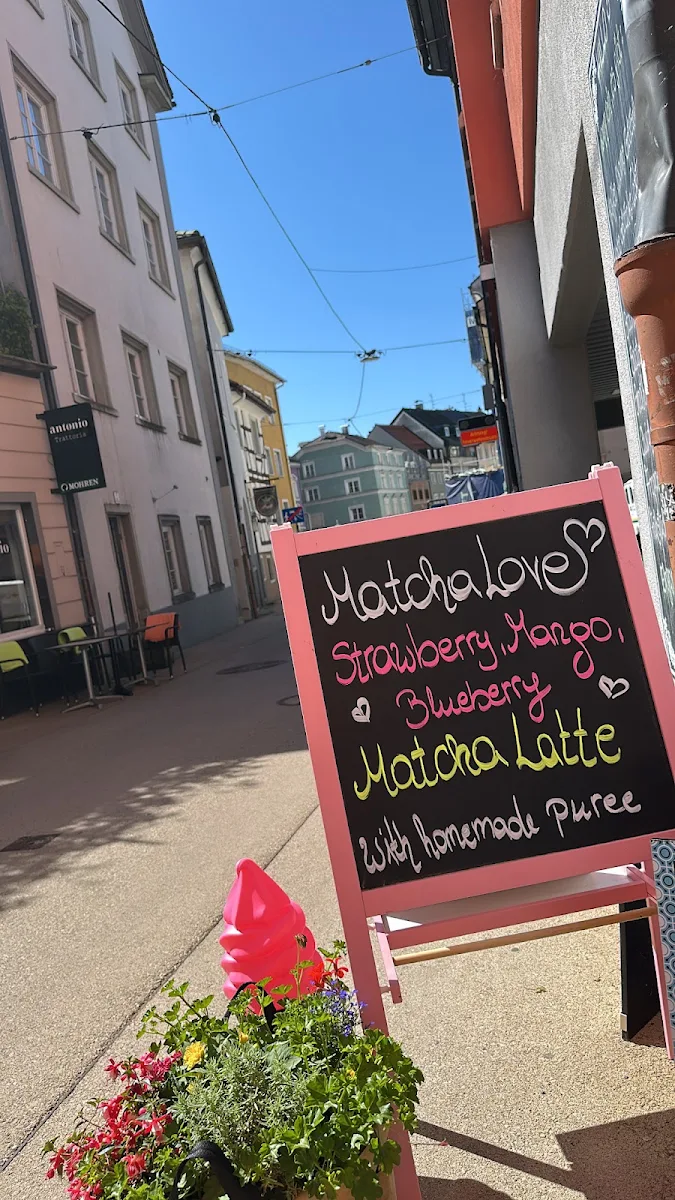 antonio
Trattoria
MOHREN
Matcha Love
Strawberry, Mango,
Blueberry
Matcha Latte
with homemade puree